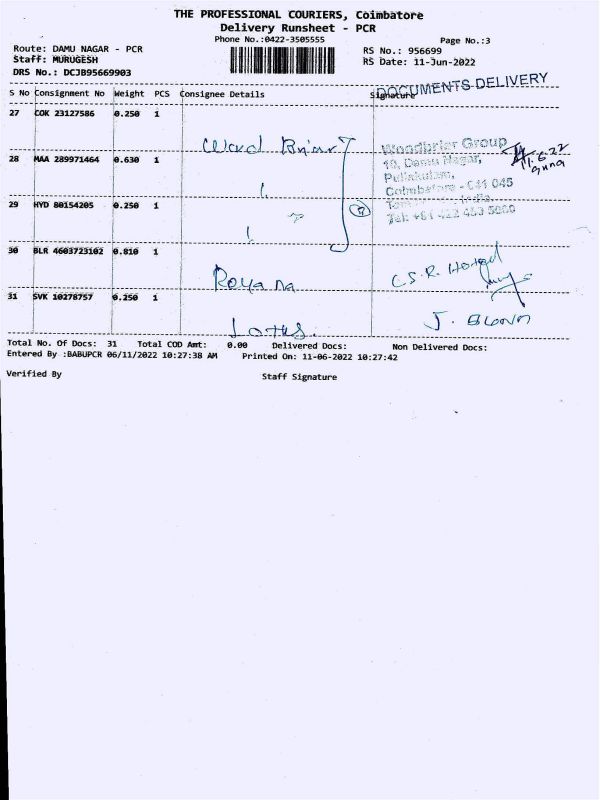 THE PROFESSIONAL COURIERS, Coimbatore
Delivery Runsheet - PCR
Phone No.:0422-3505555
Page No.:3
Route: DAMU NAGAR - PCR
RS No.: 956699
Staff: MURUGESH
RS Date: 11-Jun-2022
DRS No.: DCJB95669903
DOCUMENTS DELIVERY
S No Consignment No Weight PCS Consignee Details Signature
27 COK 23127586 0.250 1
Woodbrier Group
11.6.22
28 MAA 289971464 0.630 1
19, Damu Nagar,
Pulliakulam,
Coimbatore - 641 045
29 HYD 80154205 0.250 1
India.
30 BLR 4603723102 0.810 1
Royana C.S.R. Hotel
31 SVK 10278757 0.250 1
Lotus. J.
Total No. Of Docs: 31 Total COD Amt: 0.00 Delivered Docs: Non Delivered Docs:
Entered By :BABUPCR 06/11/2022 10:27:38 AM Printed On: 11-06-2022 10:27:42
Verified By Staff Signature